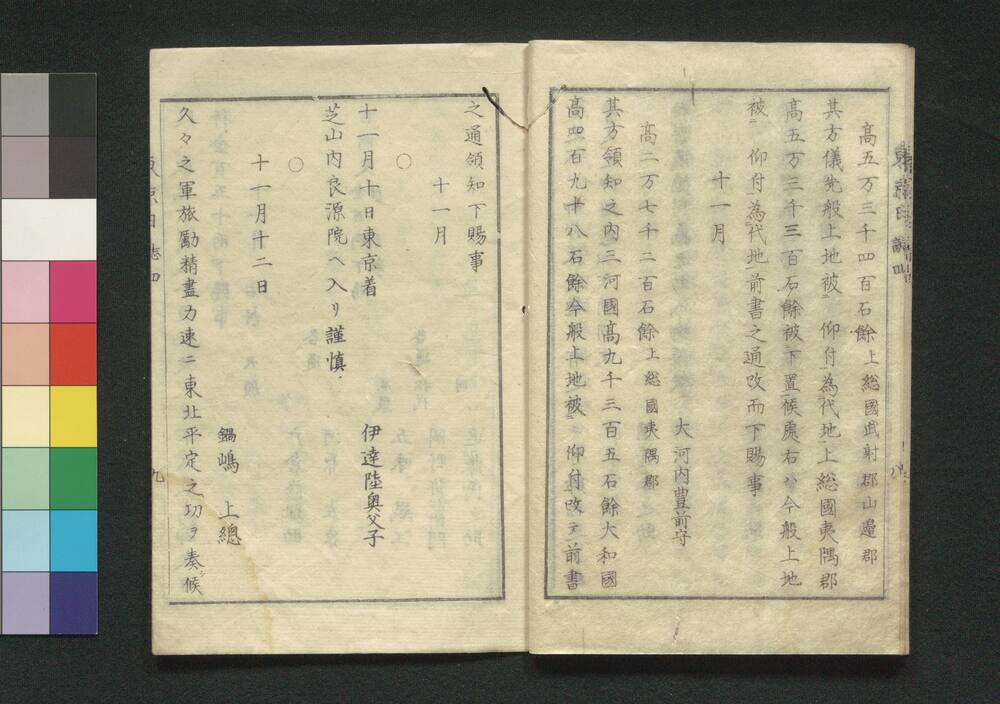 高五万三千四百石餘 上総國武射郡山邊郡
其方儀先般上地被 仰付為代地上総國夷隅郡
高五万三千三百石餘被下置候處右ハ今般上地
被 仰付為代地前書之通改而下賜事
十一月
大河内豊前守
高二万七千二百石餘 上総國夷隅郡
其方領知之内三河國高九千三百五石餘大和國
高四百九十八石餘今般上地被 仰付改テ前書
之通領知下賜事
十一月
○
十一月十日東京着
伊達陸奥父子
芝山内良源院ヘ入リ謹慎
○
十一月十二日
鍋嶋 上總
久々之軍旅勵精盡力速ニ東北平定之功ヲ奏候
九